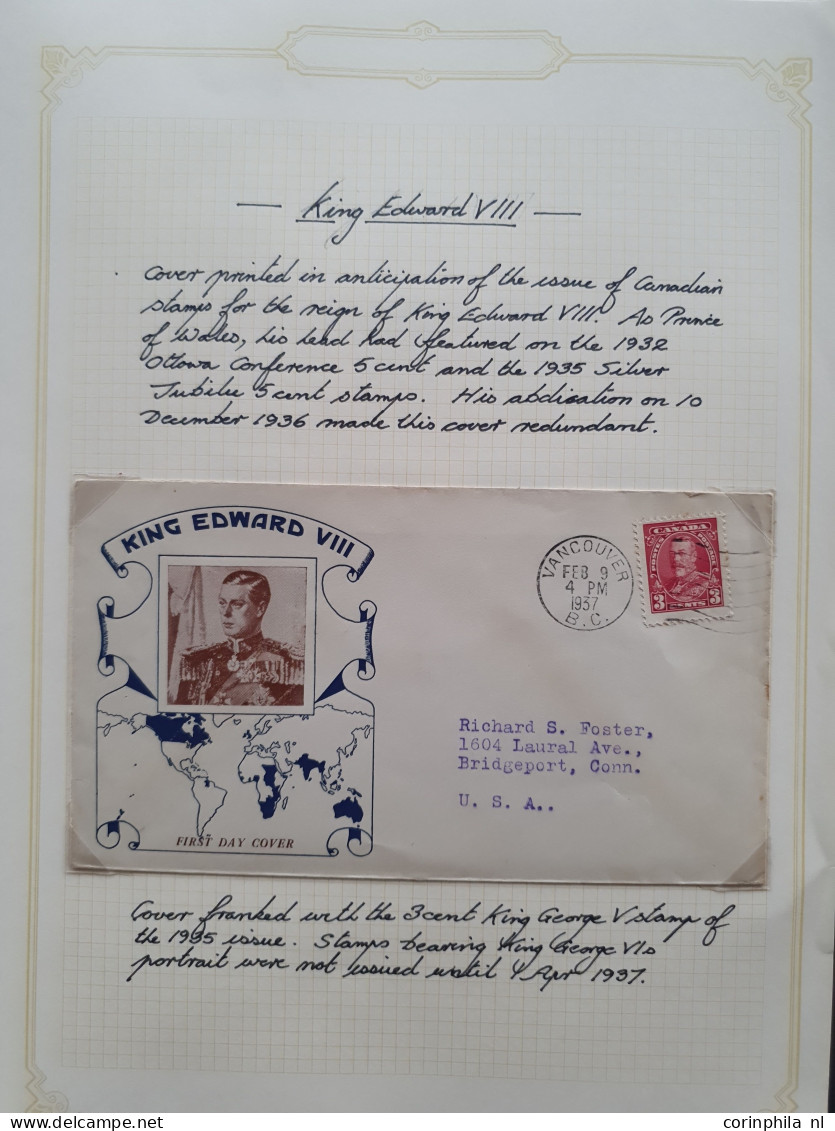 — King Edward VIII —
Cover printed in anticipation of the issue of Canadian
stamps for the reign of King Edward VIII. As Prince
of Wales, his head had featured on the 1932
Ottowa Conference 5 cent and the 1935 Silver
Jubilee 5 cent stamps. His abdication on 10
December 1936 made this cover redundant.
KING EDWARD VIII
VANCOUVER
FEB 9
4 PM
1937
B.C.
CANADA
POSTES POSTAGE
3 CENTS 3
Richard S. Foster,
1604 Laural Ave.,
Bridgeport, Conn.
U. S. A..
FIRST DAY COVER
Cover franked with the 3cent King George V stamp of
the 1935 issue. Stamps bearing King George VIs
portrait were not issued until 1 Apr 1937.
corinphila nl